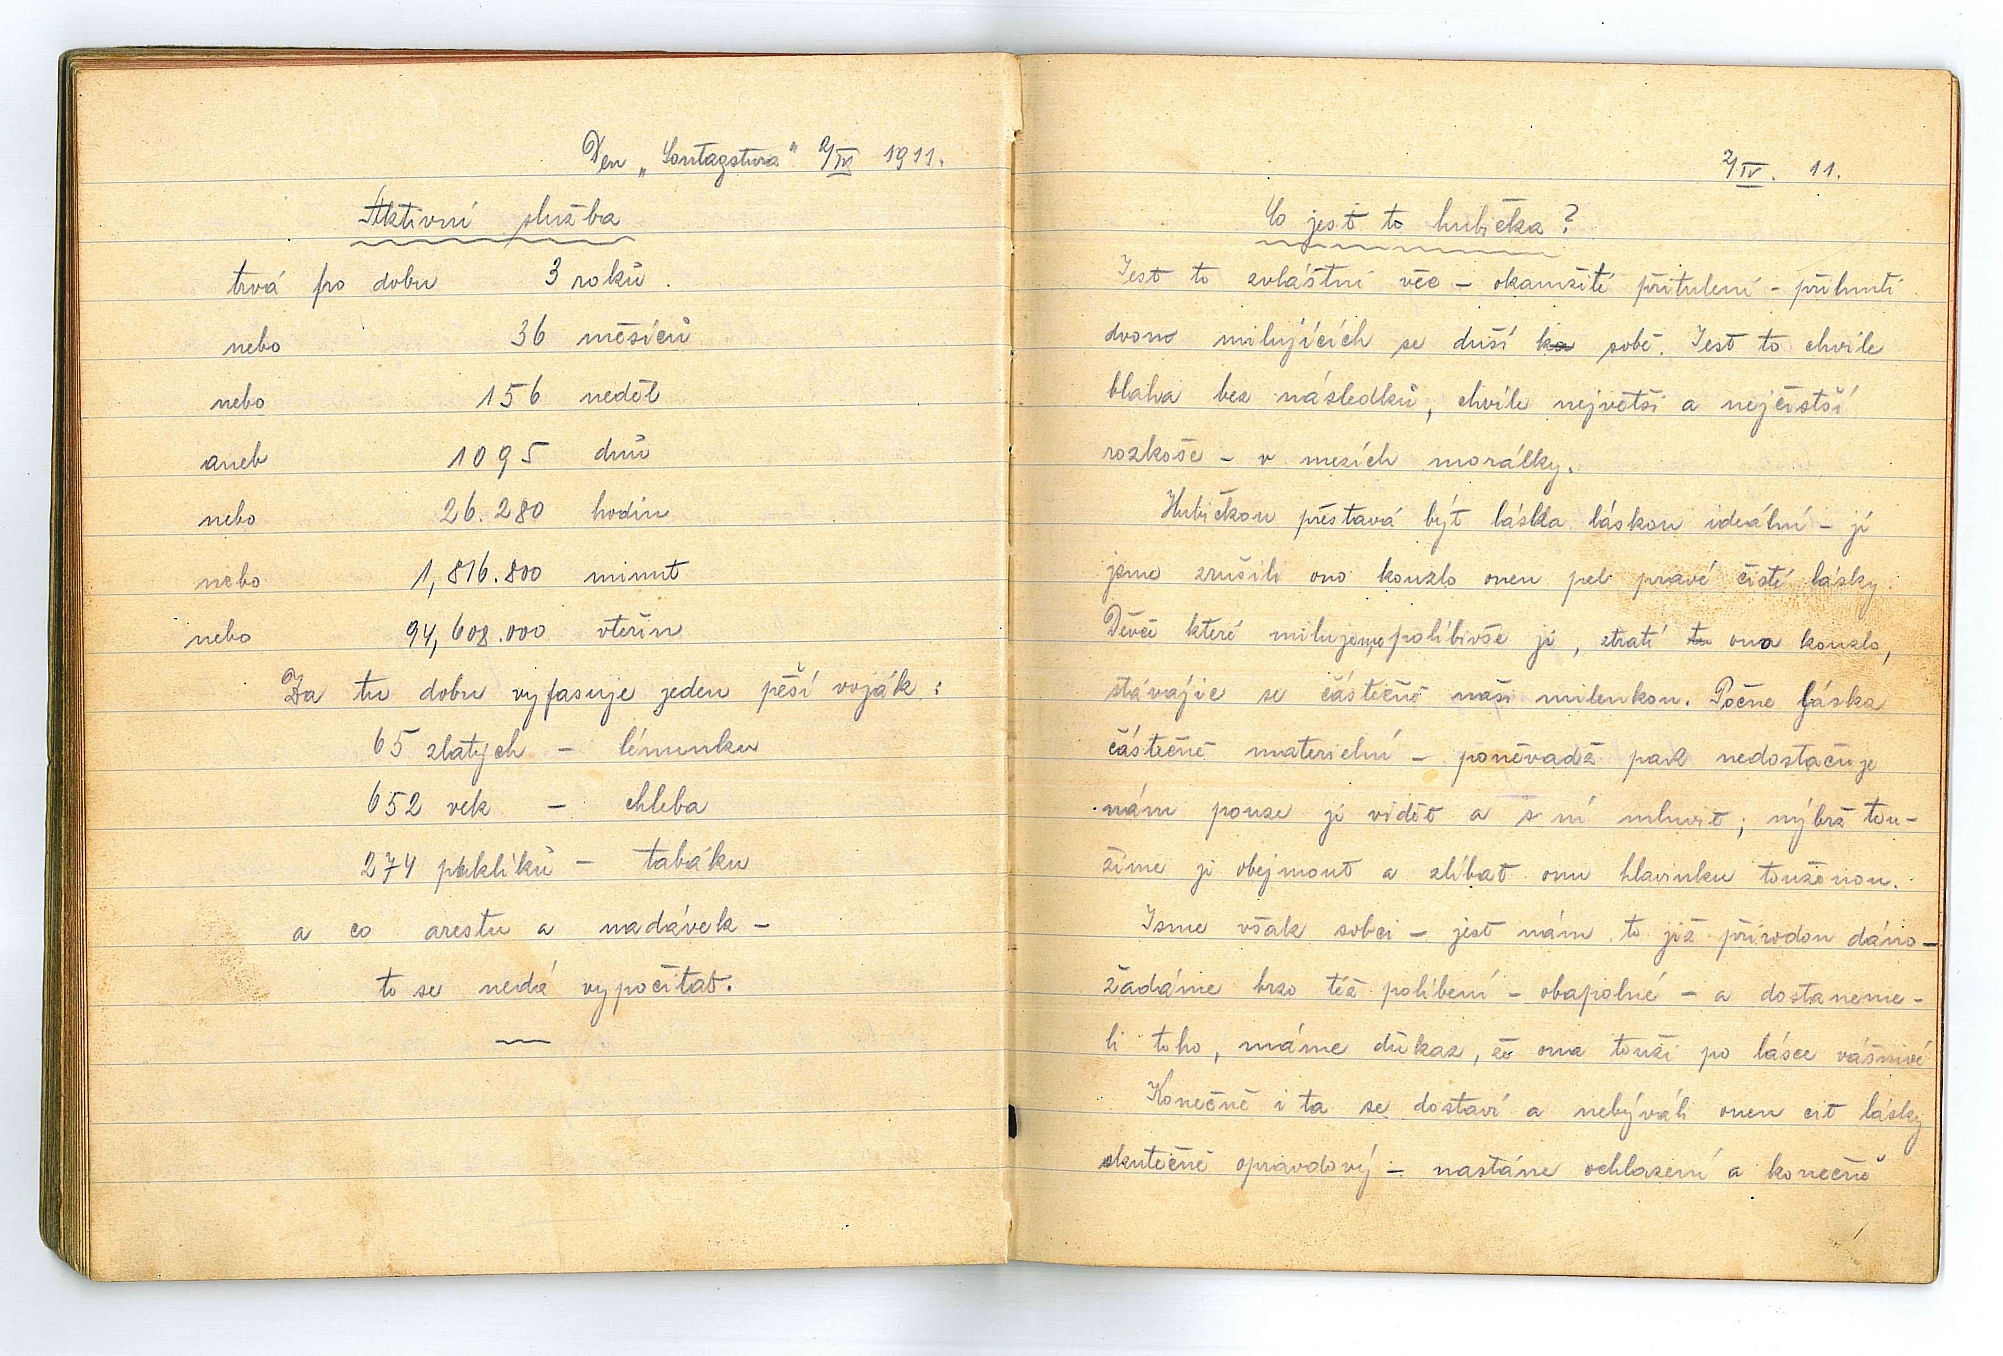 Den „Sontagstura" 2/IV 1911.
Aktivní služba
trvá pro dobu 3 roků.
nebo 36 měsíců
nebo 156 neděl
aneb 1095 dnů
nebo 26.280 hodin
nebo 1,816.800 minut
nebo 94,608.000 vteřin
Za tu dobu vyfasuje jeden pěší voják:
65 zlatých – lénunku
652 vek – chleba
274 paklíků – tabáku
a co arestu a nadávek –
to se nedá vypočítat.
2/IV. 11.
Co jest to hubička?
Jest to zvláštní věc – okamžité přitulení – přilnutí
dvou milujících se duší ka sobě. Jest to chvíle
blaha bez následků, chvíle největší a nejčistší
rozkoše – v mezích morálky.
Hubičkou přestavá být láska láskou ideální – jí
jsme zrušili ono kouzlo onen pel pravé čisté lásky.
Děvče které milujeme políbivše ji, ztratí to ono kouzlo,
stávajíc se částečně naší milenkou. Počne láska
částečně materielní – poněvadž pak nedostačuje
nám pouze ji vidět a s ní mluvit; nýbrž tou-
žíme ji obejmout a zlíbat onu hlavinku touženou.
Jsme však sobci – jest nám to již přírodou dáno –
žádáme brzo též políbení – obapolné – a dostaneme-
li toho, máme důkaz, že ona touží po lásce vášnivé
Konečně i ta se dostaví a nebýváli onen cit lásky
skutečně opravdový – nastáne ochlazení a konečně